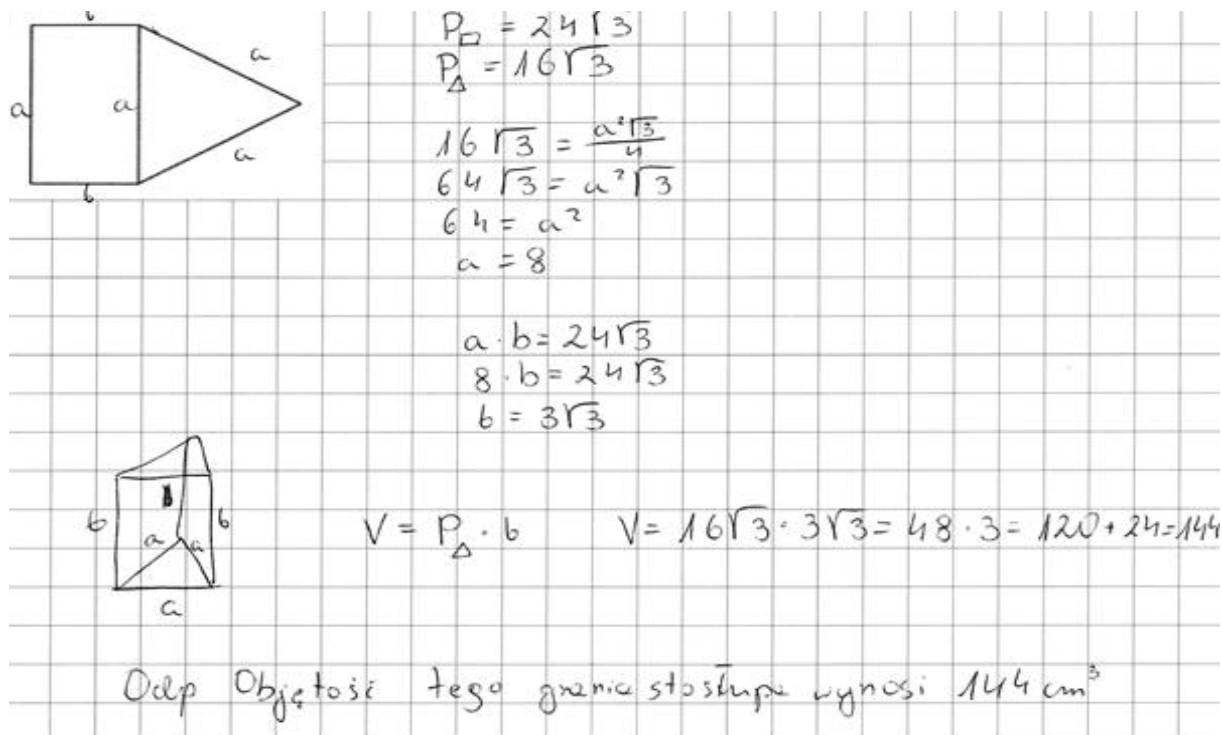 b
a a a a
b
P▭ = 24√3
P△ = 16√3
16√3 = a²√3/4
64√3 = a²√3
64 = a²
a = 8
a · b = 24√3
8 · b = 24√3
b = 3√3
b b b
a a
a
V = P△ · b V = 16√3 · 3√3 = 48 · 3 = 120 + 24 = 144
Odp Objętość tego graniastosłupa wynosi 144 cm³